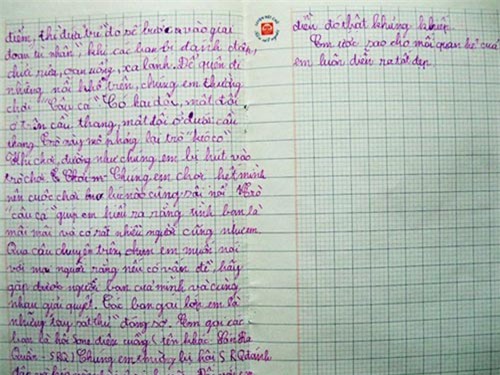 điểm, thì đứa trẻ đó sẽ bước vào giai
đoạn tù nhân", khi các bạn bị đánh đập,
chửi rủa, oan uổng, xa lánh. Để quên đi
những nỗi khổ trên, chúng em thường
chơi "Câu cá" Có hai đội, một đội
ở trên cầu thang, một đội ở dưới cầu
thang. Trò này mô phỏng lại trò "kéo co"
Khi chơi, dường như chúng em bị hút vào
trò chơi Chúng em chơi hết mình
nên cuộc chơi lúc nào cũng sôi nổi. Trò
"câu cá" giúp em hiểu ra rằng tình bạn là
mãi mãi và có rất nhiều người cũng như em.
Qua câu chuyện trên, em muốn nói
với mọi người rằng nếu có vấn đề, hãy
gặp được người bạn của mình và cùng
nhau giải quyết. Các bạn gái lớp em là
những "tay sát thủ" đáng sợ. Em gọi các
bạn là hội (tên khác:
Quân - SRQ) Chúng em thường bị hội SRQ đánh
điều đó thật khủng khiếp.
Em ước sao cho mối quan hệ của
em luôn diễn ra tốt đẹp.